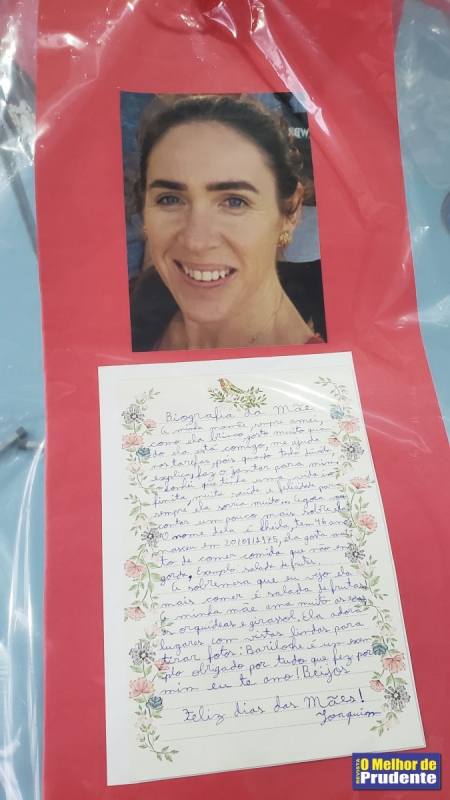 WBR
Biografia da Mãe
A minha mamãe sempre amei,
como ela brinco, gosto muito quan
do ela está comigo, me ajuda
nas tarefas, pois quando todo junto,
explica, faz o jantar para mim.
desejo que tenha um vida in
finita, muita saúde e felicidade para
sempre ela sorria muito. Agora vou
contar um pouco mais sobre ela
O nome dela é Sheila, tem 46 anos
nasceu em 20/08/1975, ela gosta mui
to de comer comida que não en
gorda, Exemplo salada de frutas.
A sobremesa que eu vejo ela
mais comer é salada de frutas
e minha mãe ama muito as ros
as orquídeas e girassol. Ela adora
lugares com vistas lindas para
tirar fotos: Bariloche é um exem
plo obrigado por tudo que fez por
mim eu te amo! Beijos
Feliz dias das Mães!
Joaquim
REVISTA
O Melhor de
Prudente